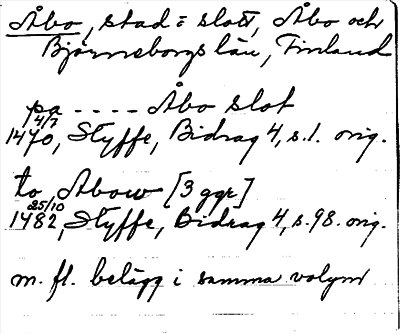 Åbo, stad = slott, Åbo och
Björneborgs län, Finland
pa - - - - Åbo slot
4/7
1470, Styffe, Bidrag 4, s. 1. orig.
to Abow [3 ggr]
25/10
1482, Styffe, Bidrag 4, s. 98. orig.
m. fl. belägg i samma volym